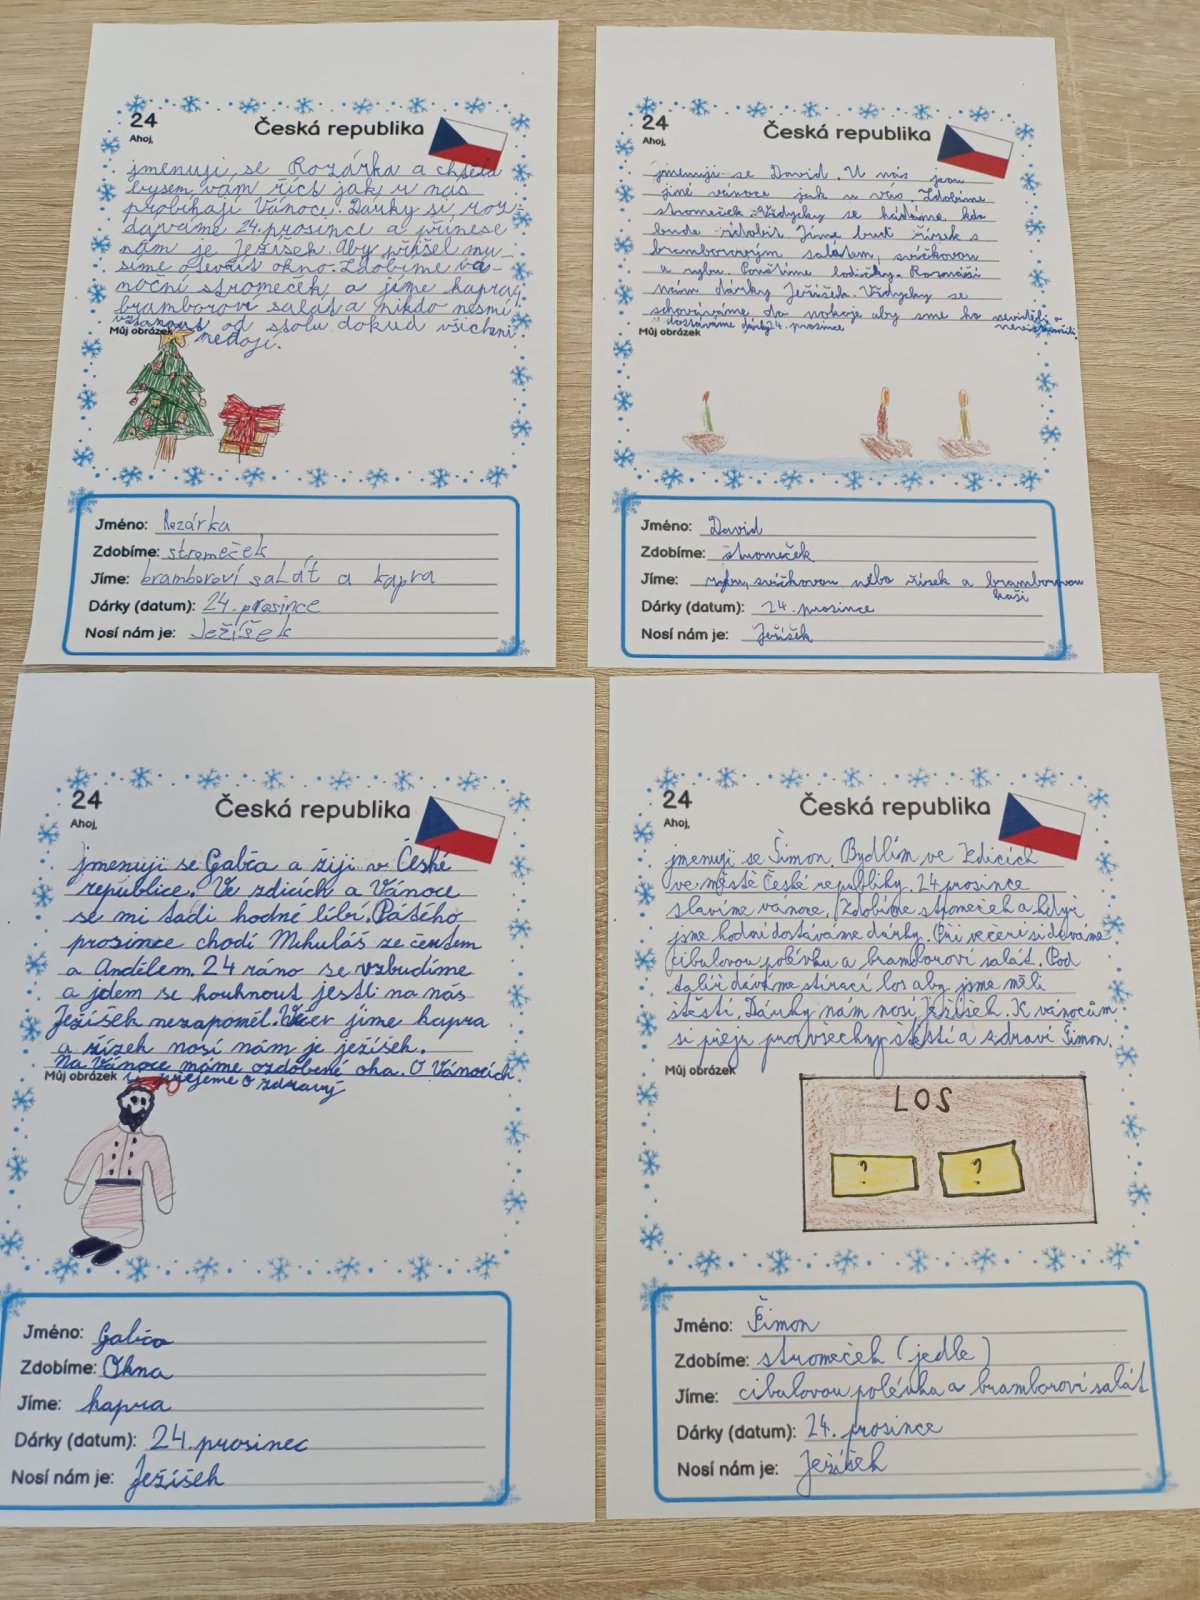 24
Ahoj,
Česká republika
jmenuji se Rozárka a chtěla
bysem vám říct jak u nás
probíhají Vánoce. Dárky si roz-
dáváme 24. prosince a přinese
nám je Ježíšek. Aby přišel mu-
síme otevřít okno. Zdobíme vá-
noční stromeček a jíme kapra,
bramboroví salát a nikdo nesmí
vstanout od stolu dokud všichni
nedojí.
Můj obrázek
Jméno: Rozárka
Zdobíme: stromeček
Jíme: bramboroví salát a kapra
Dárky (datum): 24. prosince
Nosí nám je: Ježíšek
24
Ahoj,
Česká republika
jmenuji se David. U nás jsou
jiné vánoce jak u vás. Zdobíme
stromeček. Vždycky se hádáme kdo
bude zdobit. Jíme buť řízek s
bramborovým salátem, svíčkovou
a rybu. Pouštíme lodičky. Roznáší
nám dárky Ježíšek. Vždycky se
schováváme do pokoje aby sme ho neviděli a
dostáváme dárky 24. prosince
Můj obrázek
Jméno: David
Zdobíme: stromeček
Jíme: rybu, svíčkovou nebo řízek a bramborovou
kaši
Dárky (datum): 24. prosince
Nosí nám je: Ježíšek
24
Ahoj,
Česká republika
jmenuji se Galča a žiji v České
republice. Ve zdicích a Vánoce
se mi tadi hodně líbí. Pátého
prosince chodí Mikuláš ze čertem
a Andělem. 24 ráno se vzbudíme
a jdem se kouknout jestli na nás
Ježíšek nezapoměl. Večer jíme kapra
a řízek nosí nám je ježíšek.
Na Vánoce máme ozdobené oka. O Vánocích
si přejeme o zdravý
Můj obrázek
Jméno: Galča
Zdobíme: Okna
Jíme: kapra
Dárky (datum): 24. prosinec
Nosí nám je: Ježíšek
24
Ahoj,
Česká republika
jmenuji se Šimon. Bydlím ve Zdicích
ve městě České republiky. 24 prosince
slavíme vánoce. Zdobíme stromeček a když
jsme hodní dostáváme dárky. Při večeři si dáváme
cibulovou polévku a bramboroví salát. Pod
talíř dáváme stírací los aby jsme měli
štěstí. Dárky nám nosí Ježíšek. K vánocům
si přeju pro všechny štěstí a zdraví Šimon.
Můj obrázek
LOS
? ?
Jméno: Šimon
Zdobíme: stromeček (jedle)
Jíme: cibulovou polévku a bramboroví salát
Dárky (datum): 24. prosince
Nosí nám je: Ježíšek